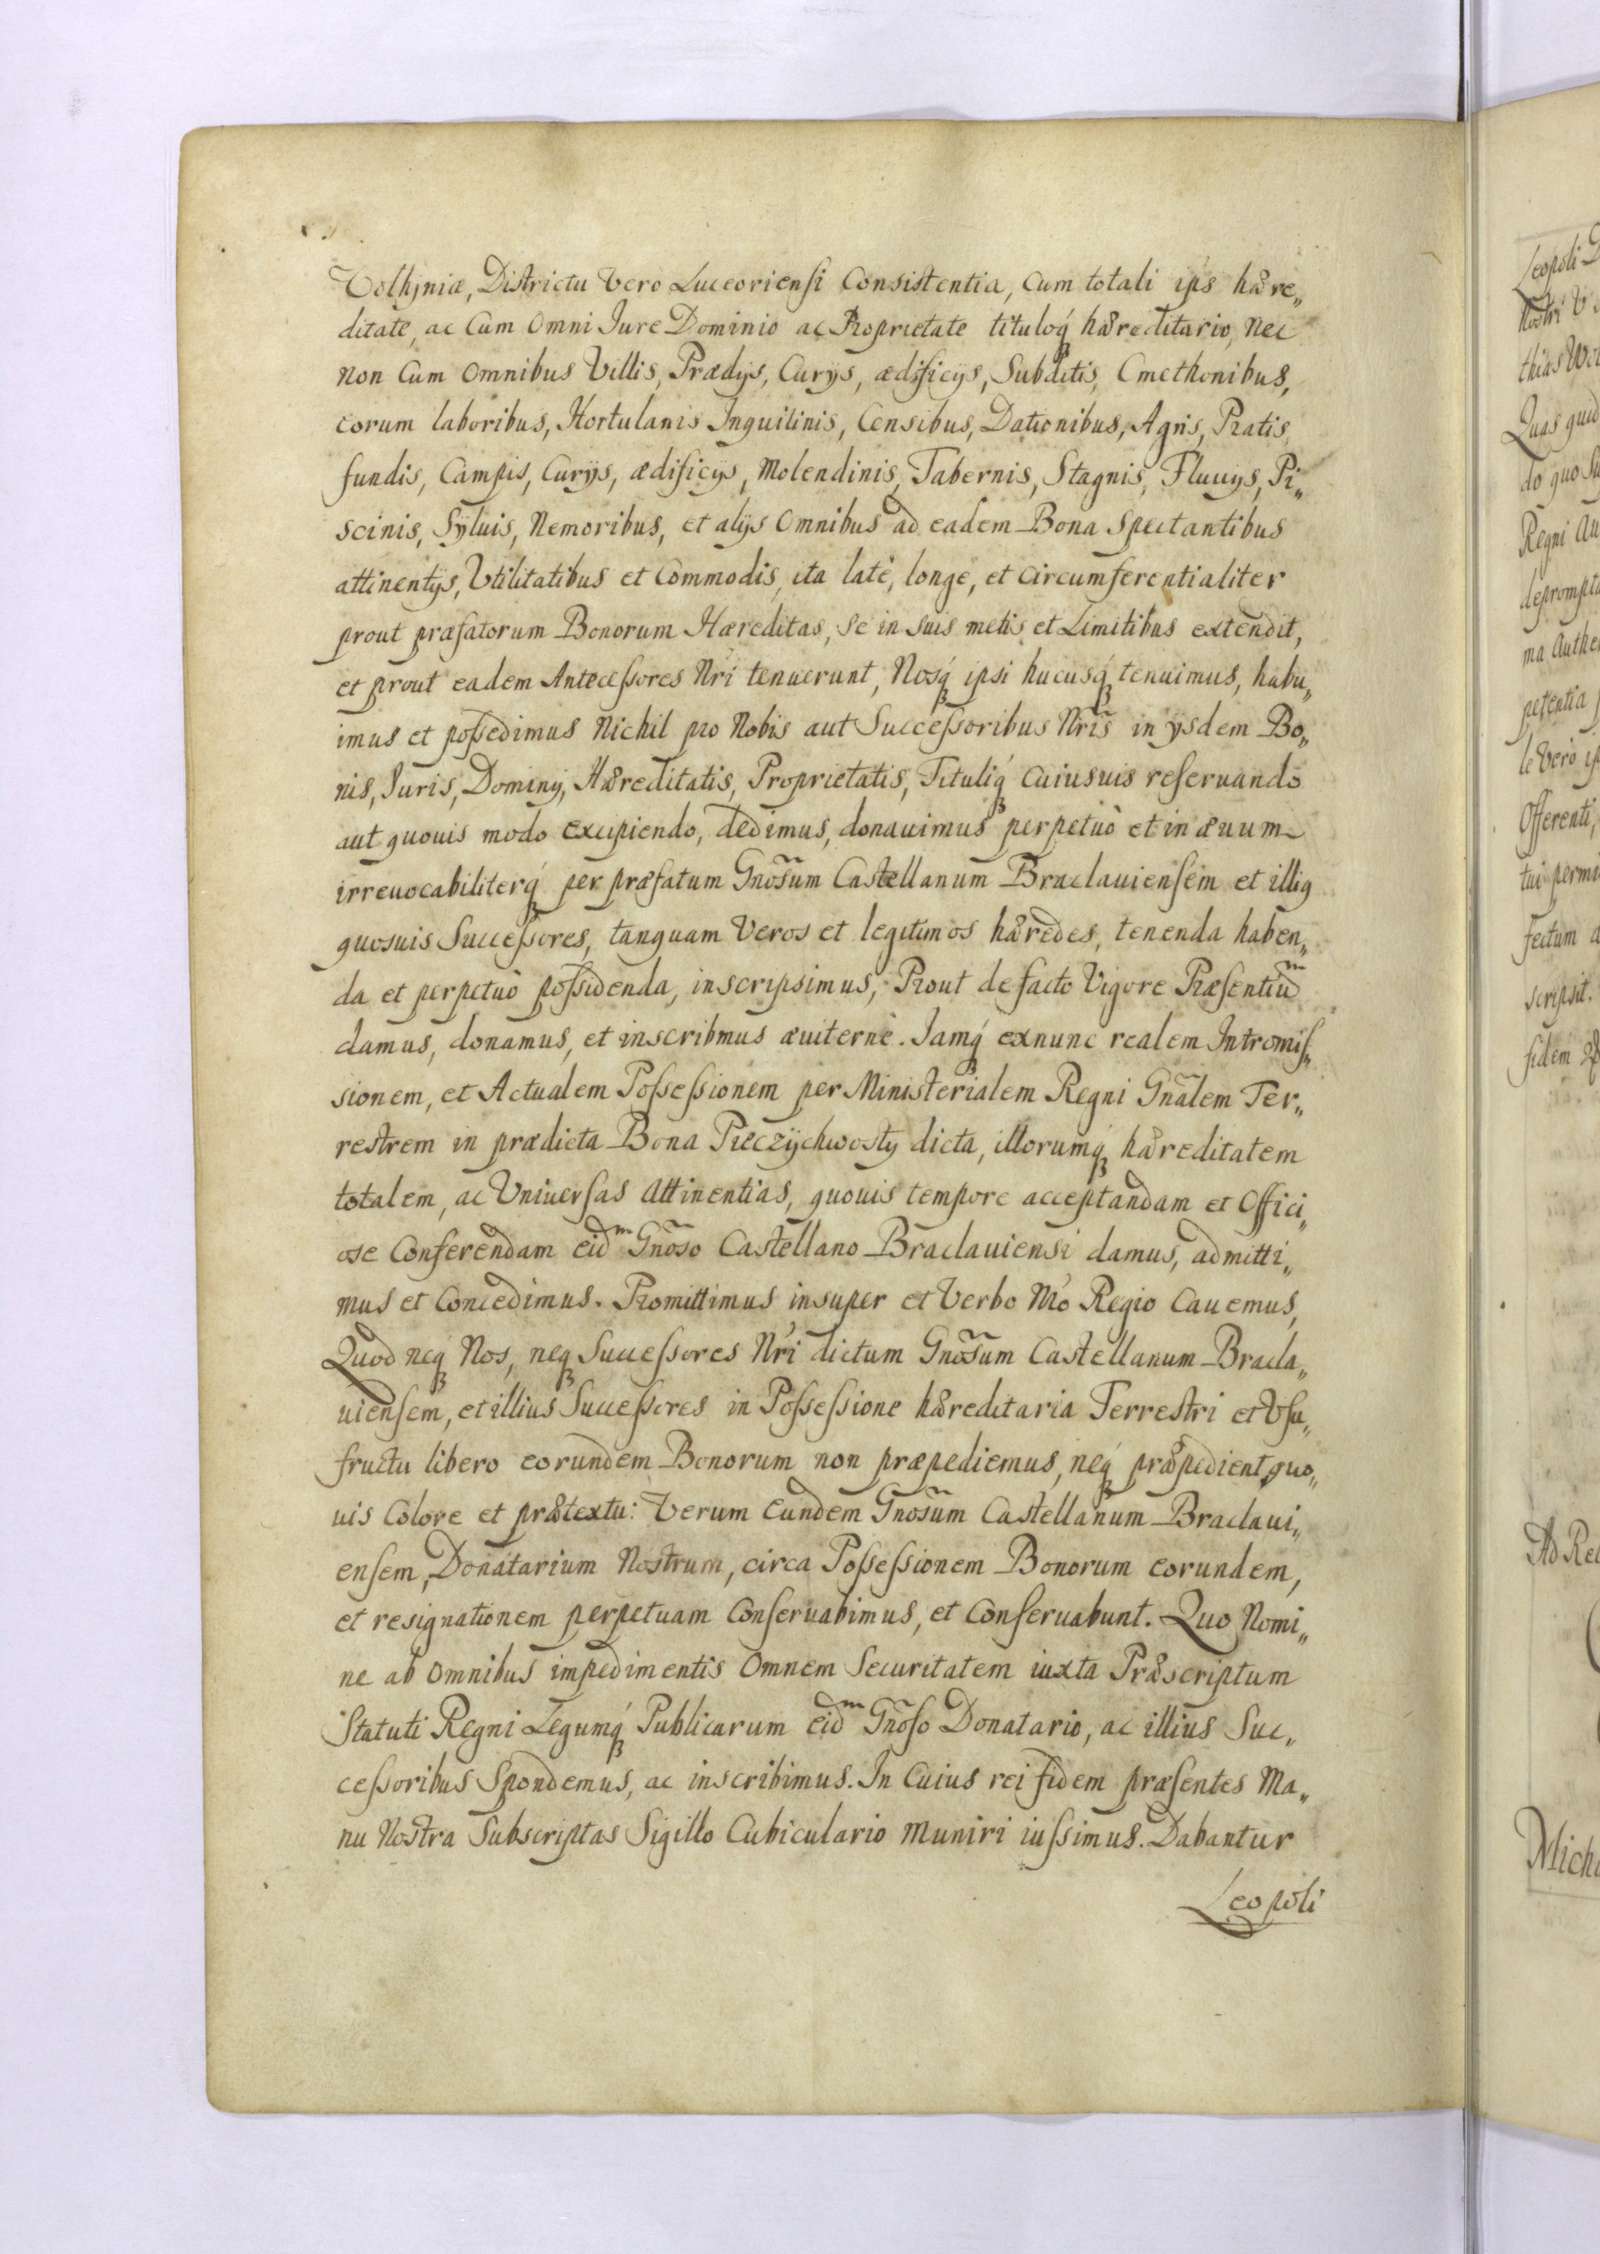 Volhyniæ, Districtu Vero Luceoriensi Consistentia, Cum totali ips hære„
ditate, ac Cum Omni Iure Dominio ac Proprietate tituloq́ hæreditario, Nec
Non Cum Omnibus Villis, Prædijs, Curÿs, ædificÿs, Subditis, Cmethonibus,
eorum laboribus, Hortulanis Inquilinis, Censibus, Dationibus, Agris, Pratis,
fundis, Campis, Curÿs, ædificÿs, Molendinis, Tabernis, Stagnis, Fluuÿs, Pi„
scinis, Sÿluis, Nemoribus, et alÿs Omnibus ad eadem Bona Spectantibus
attinentÿs, Vtilitatibus et Commodis, ita latè, longè, et Circumferentialiter
prout præfatorum Bonorum Hæreditas, Se in suis metis et Limitibus extendit,
et prout eadem Antecessores Nrĩ tenuerunt, Nosq́ ipsi hucusq́ tenuimus, habu„
imus et possedimus Nichil pro Nobis aut Successoribus Nrĩs in ÿsdem Bo„
nis, Iuris, Dominÿ, Hæreditatis, Proprietatis, Tituliq́ Cuiusuis reseruando
aut quouis modo Excipiendo, dedimus, donauimus perpetuò et in æuum
irreuocabiliterq́ per præfatum Gnõsum Castellanum Braclauiensem et illig
quosuis Successores, tanquam Veros et legitimos hæredes, tenenda haben„
da et perpetuò possidenda, inscripsimus, Prout de facto Vigore Præsentiũ
damus, donamus, et inscribmus æuiternè. Iamq́ exnunc realem Intromis„
sionem, et Actualem Possessionem per Ministerialem Regni Gnãlem Ter„
restrem in prædicta Bona Pieczÿchwosty dicta, illorumq́ hæreditatem
totalem, ac Vniuersas Attinentias, quouis tempore acceptandam et Offici„
ose Conferendam eidᵐ Gnõso Castellano Braclauiensi damus, admitti„
mus et Concedimus. Promittimus insuper et Verbo Nr̃o Regio Cauemus,
Quod neq́ Nos, neq́ Successores Nrĩ dictum Gnõsum Castellanum Bracla„
uiensem, et illius Successores in Possessione hæreditaria Terrestri et Vsu„
fructu libero eorundem Bonorum non præpediemus, neq́ præpedient quo„
uis Colore et prætextu: Verum Eundem Gnõsum Castellanum Braclaui„
ensem, Donatarium Nostrum, circa Possessionem Bonorum eorundem,
et resignationem perpetuam Conseruabimus, et Conseruabunt. Quo Nomi„
ne ab Omnibus impedimentis Omnem Securitatem iuxta Præscriptum
Statuti Regni Legumq́ Publicarum Eidᵐ Gnõso Donatario, ac illius Suc„
cessoribus Spondemus, ac inscribimus. In Cuius rei fidem præsentes Ma„
nu Nostra Subscriptas Sigillo Cubiculario Muniri iussimus. Dabantur
Leopoli